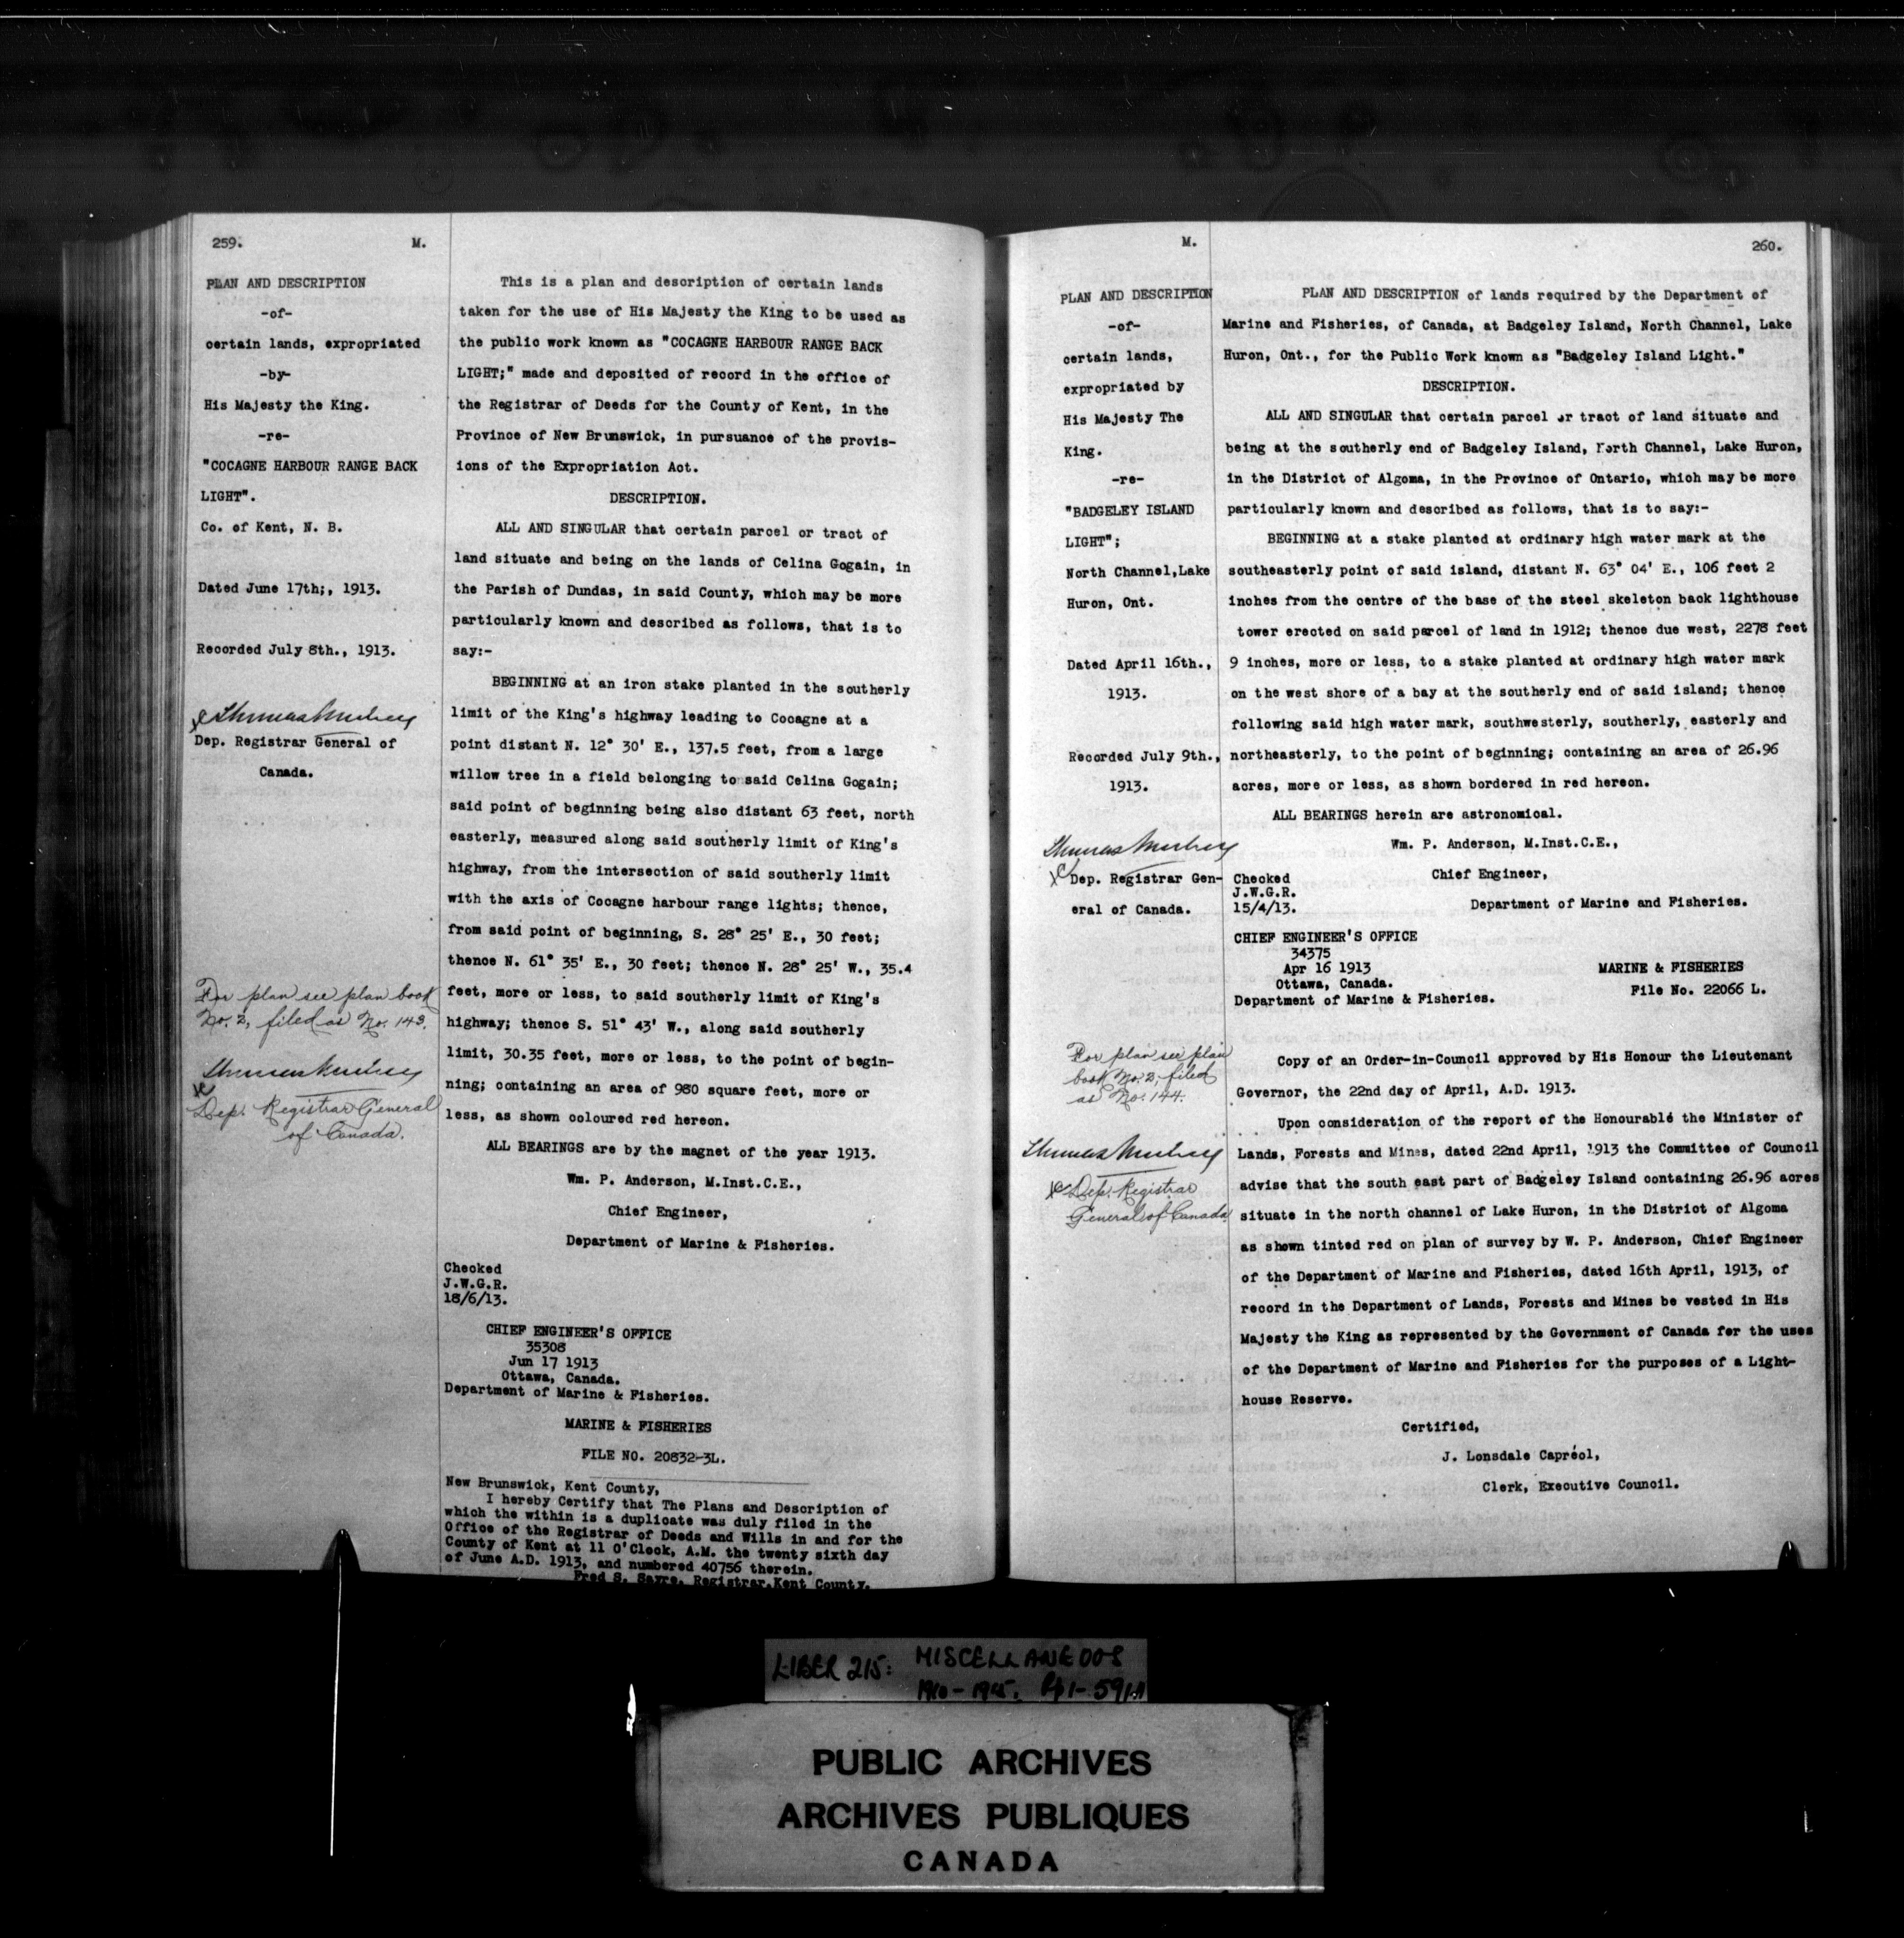 259. M.
PLAN AND DESCRIPTION
-of-
certain lands, expropriated
-by-
His Majesty the King.
-re-
"COCAGNE HARBOUR RANGE BACK
LIGHT".
Co. of Kent, N. B.
Dated June 17th;, 1913.
Recorded July 8th., 1913.
Dep. Registrar General of
Canada.
For plan see plan book
No. 2, filed as No. 143.
Dep. Registrar General
of Canada.
This is a plan and description of certain lands
taken for the use of His Majesty the King to be used as
the public work known as "COCAGNE HARBOUR RANGE BACK
LIGHT;" made and deposited of record in the office of
the Registrar of Deeds for the County of Kent, in the
Province of New Brunswick, in pursuance of the provis-
ions of the Expropriation Act.
DESCRIPTION.
ALL AND SINGULAR that certain parcel or tract of
land situate and being on the lands of Celina Gogain, in
the Parish of Dundas, in said County, which may be more
particularly known and described as follows, that is to
say:-
BEGINNING at an iron stake planted in the southerly
limit of the King's highway leading to Cocagne at a
point distant N. 12° 30' E., 137.5 feet, from a large
willow tree in a field belonging to said Celina Gogain;
said point of beginning being also distant 63 feet, north
easterly, measured along said southerly limit of King's
highway, from the intersection of said southerly limit
with the axis of Cocagne harbour range lights; thence,
from said point of beginning, S. 28° 25' E., 30 feet;
thence N. 61° 35' E., 30 feet; thence N. 28° 25' W., 35.4
feet, more or less, to said southerly limit of King's
highway; thence S. 51° 43' W., along said southerly
limit, 30.35 feet, more or less, to the point of begin-
ning; containing an area of 980 square feet, more or
less, as shown coloured red hereon.
ALL BEARINGS are by the magnet of the year 1913.
Wm. P. Anderson, M.Inst.C.E.,
Chief Engineer,
Department of Marine & Fisheries.
Checked
J.W.G.R.
18/6/13.
CHIEF ENGINEER'S OFFICE
35308
Jun 17 1913
Ottawa, Canada.
Department of Marine & Fisheries.
MARINE & FISHERIES
FILE NO. 20832-3L.
New Brunswick, Kent County,
I hereby Certify that The Plans and Description of
which the within is a duplicate was duly filed in the
Office of the Registrar of Deeds and Wills in and for the
County of Kent at 11 O'Clock, A.M. the twenty sixth day
of June A.D. 1913, and numbered 40756 therein.
Fred S. Sayre, Registrar,Kent County.
M. 260.
PLAN AND DESCRIPTION
-of-
certain lands,
expropriated by
His Majesty The
King.
-re-
"BADGELEY ISLAND
LIGHT";
North Channel,Lake
Huron, Ont.
Dated April 16th.,
1913.
Recorded July 9th.,
1913.
Dep. Registrar Gen-
eral of Canada.
For plan see plan
book No. 2, filed
as No. 144.
Dep. Registrar
General of Canada
PLAN AND DESCRIPTION of lands required by the Department of
Marine and Fisheries, of Canada, at Badgeley Island, North Channel, Lake
Huron, Ont., for the Public Work known as "Badgeley Island Light."
DESCRIPTION.
ALL AND SINGULAR that certain parcel or tract of land situate and
being at the southerly end of Badgeley Island, North Channel, Lake Huron,
in the District of Algoma, in the Province of Ontario, which may be more
particularly known and described as follows, that is to say:-
BEGINNING at a stake planted at ordinary high water mark at the
southeasterly point of said island, distant N. 63° 04' E., 106 feet 2
inches from the centre of the base of the steel skeleton back lighthouse
tower erected on said parcel of land in 1912; thence due west, 2278 feet
9 inches, more or less, to a stake planted at ordinary high water mark
on the west shore of a bay at the southerly end of said island; thence
following said high water mark, southwesterly, southerly, easterly and
northeasterly, to the point of beginning; containing an area of 26.96
acres, more or less, as shown bordered in red hereon.
ALL BEARINGS herein are astronomical.
Wm. P. Anderson, M.Inst.C.E.,
Chief Engineer,
Department of Marine and Fisheries.
Checked
J.W.G.R.
15/4/13.
CHIEF ENGINEER'S OFFICE
34375
Apr 16 1913
Ottawa, Canada.
Department of Marine & Fisheries.
MARINE & FISHERIES
File No. 22066 L.
Copy of an Order-in-Council approved by His Honour the Lieutenant
Governor, the 22nd day of April, A.D. 1913.
Upon consideration of the report of the Honourable the Minister of
Lands, Forests and Mines, dated 22nd April, 1913 the Committee of Council
advise that the south east part of Badgeley Island containing 26.96 acres
situate in the north channel of Lake Huron, in the District of Algoma
as shown tinted red on plan of survey by W. P. Anderson, Chief Engineer
of the Department of Marine and Fisheries, dated 16th April, 1913, of
record in the Department of Lands, Forests and Mines be vested in His
Majesty the King as represented by the Government of Canada for the uses
of the Department of Marine and Fisheries for the purposes of a Light-
house Reserve.
Certified,
J. Lonsdale Capréol,
Clerk, Executive Council.
LIBER 215: MISCELLANEOUS
1910-1915. Pp 1-591
PUBLIC ARCHIVES
ARCHIVES PUBLIQUES
CANADA